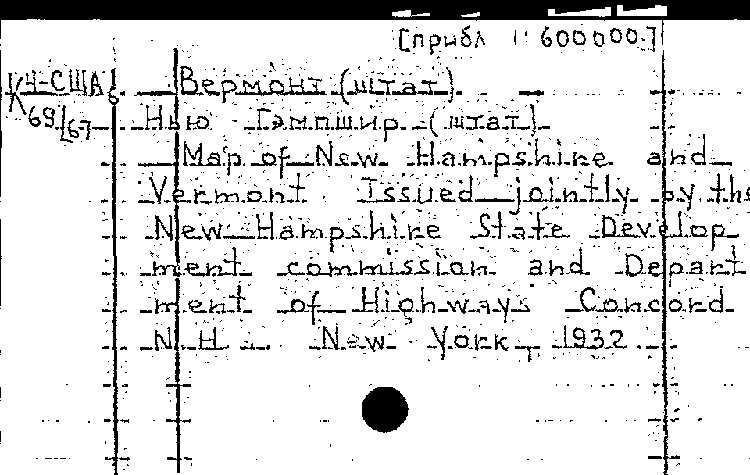 [прибл 1:600000.]
К4-США
Вермонт (штат)
К 69/67
Нью Гэмпшир (штат)
Map of New Hampshire and
Vermont Issued jointly by the
New Hampshire State Develop
ment commission and Depart
ment of Highways Concord
N H New York, 1932